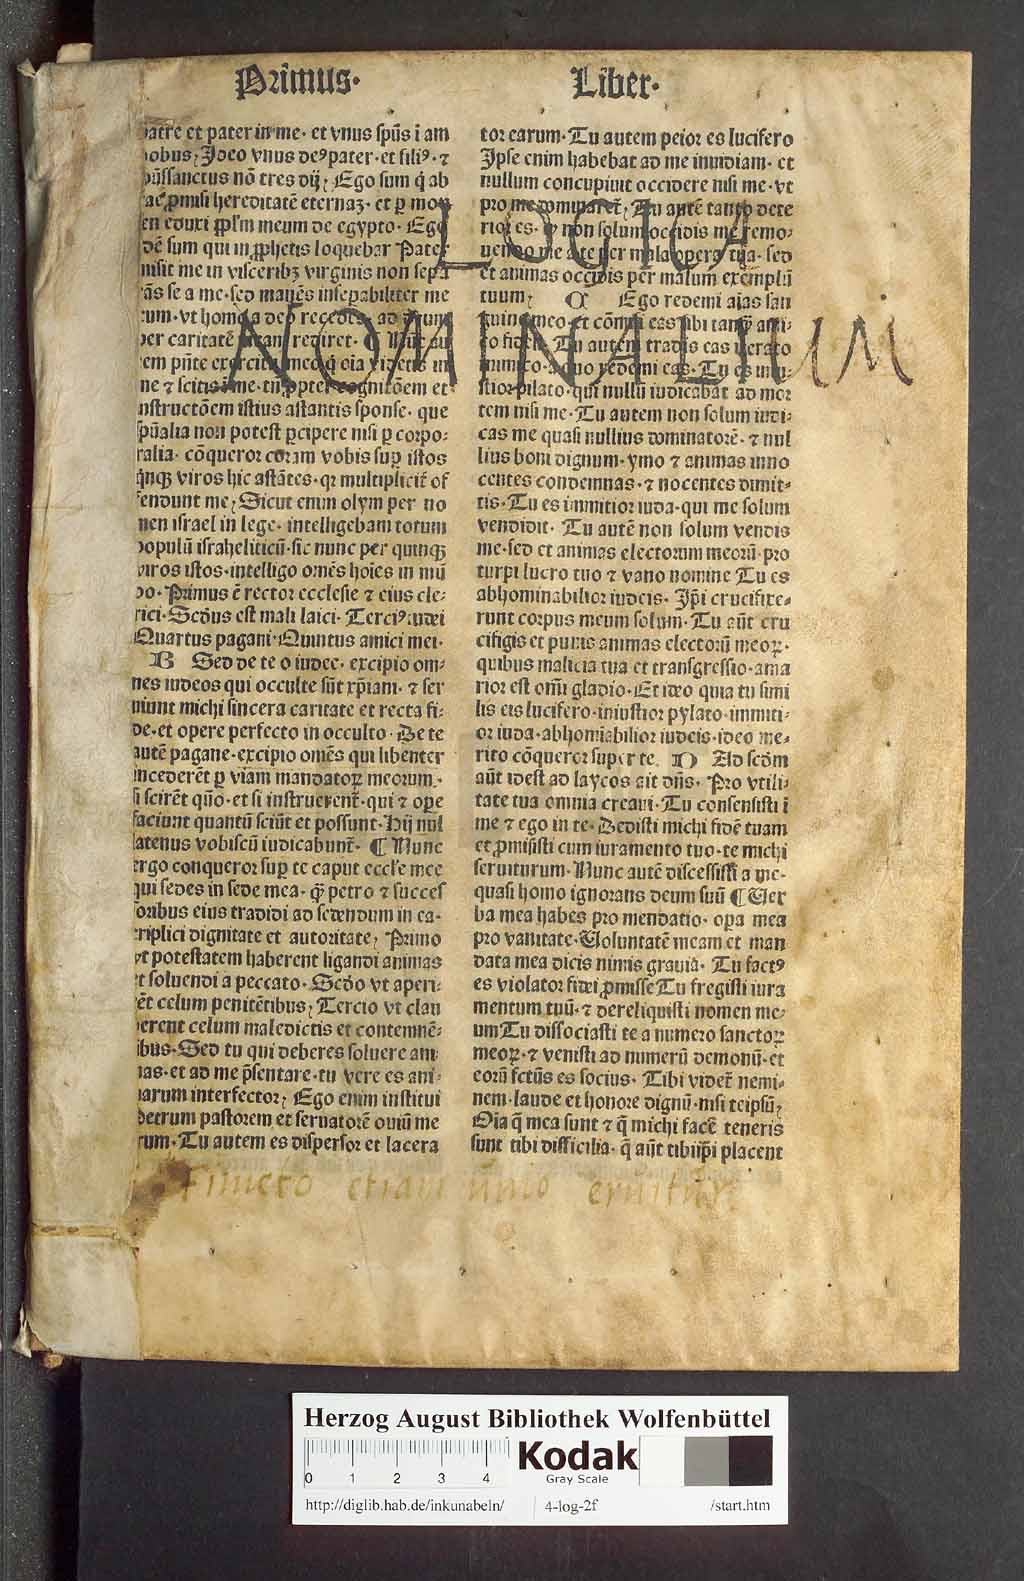 Primus· Liber·
patre et pater in me· et vnus spūs i am
nobus⁊ Ideo vnus de⁹ pater· et fili⁹· ⁊
spūssanctus nō tres dij⁊ Ego sum q̇ ab
rae ꝓmisi hereditatē eternaꝫ· et ꝑ moy
sen eduxi ꝓplm̄ meum de egypto· Ego
idē sum qui in ꝓphetis loquebar Pater
misit me in visceribꝫ virginis non sepa
rās se a me· sed manēs inseꝑabiliter me
cum· vt homo a deo recedēs· ad deum
per caritatē meam rediret· ¶ Nūc au
tem pn̄te exercitu meo q̇ oīa videtis in
me ⁊ scitis in me· tn̄ ꝓpter cognitōem et
instructōem istius astantis sponse· que
spūalia non potest ꝑcipere nisi ꝑ corpo⸗
ralia· cōqueror coram vobis suꝑ istos
q̇nqꝫ viros hic astātes· qꝛ multiplicit̄ of
fendunt me⁊ Sicut enim olym per no
men israel in lege· intelligebam totum
populū israheliticū· sic nunc per quinqꝫ
viros istos· intelligo omēs hoīes in mū
do· Primus ē rector ecclesie ⁊ eius cle⸗
rici· Scd̄us est mali laici· Terci⁹ iudei
Quartus pagani· Quintus amici mei·
B Sed de te o iudee· excipio om⸗
nes iudeos qui occulte sūt xp̄iani· ⁊ ser
uiunt michi sincera caritate et recta fi⸗
de· et opere perfecto in occulto· De te
autē pagane· excipio omēs qui libenter
incederēt ꝑ viam mandatoꝝ meorum·
si scirēt quō· et si instruerent̄· qui ⁊ oꝑe
faciunt quantū sciūt et possunt· Hij nul
latenus vobiscū iudicabunt̄· ¶ Nunc
ergo conqueror suꝑ te caput eccl̄ie mee
qui sedes in sede mea· q̄ꝫ petro ⁊ succes
soribus eius tradidi ad sedendum in ea·
triplici dignitate et autoritate⁊ Primo
vt potestatem haberent ligandi animas
et soluendi a peccato· Scd̄o vt aperi⸗
rēt celum penitētibus⁊ Tercio vt clau
derent celum maledictis et contemnē⸗
tibus· Sed tu qui deberes soluere ani
mas· et ad me p̄sentare· tu vere es ani⸗
marum interfector⁊ Ego enim institui
petrum pastorem et seruatorē ouiū me
arum· Tu autem es dispersor et lacera
tor earum· Tu autem peior es lucifero
Ipse enim habebat ad me inuidiam· et
nullum concupiuit occidere nisi me· vt
pro me dominaret̄⁊ Tu autē tanto dete
rior es· qꝫ non solum occidis me remo⸗
uendo me a te per mala opera tua· sed
et animas occidis per malum exemplū
tuum⁊ C Ego redemi aīas san
guine meo et cōmisi eas tibi tanqꝫ ami⸗
co fideli· Tu autem tradis eas iterato
inimico· a quo redemi eas· Tu es iniu⸗
stior pilato· qui nullū iudicabat ad mor
tem nisi me· Tu autem non solum iudi⸗
cas me quasi nullius dominatorē· ⁊ nul
lius boni dignum· ymo ⁊ animas inno
centes condemnas· ⁊ nocentes dimit⸗
tis· Tu es immitior iuda· qui me solum
vendidit· Tu autē non solum vendis
me· sed et animas electorum meorū· pro
turpi lucro tuo ⁊ vano nomine Tu es
abhominabilior iudeis· Ip̄i crucifixe⸗
runt corpus meum solum· Tu aūt cru
cifigis et punis animas electorū meoꝝ·
quibus malicia tua et transgressio· ama
rior est om̄i gladio· Et ideo quia tu simi
lis eis lucifero· iniustior pylato· immiti⸗
or iuda· abhomiabilior iudeis· ideo me⸗
rito cōqueror super te· D Ad scd̄m
aūt idest ad laycos ait dn̄s· Pro vtili⸗
tate tua omnia creaui· Tu consensisti ī
me ⁊ ego in te· Dedisti michi fidē tuam
et ꝓmisisti cum iuramento tuo· te michi
seruiturum· Nunc autē discessisti a me·
quasi homo ignorans deum suū ¶ Uer
ba mea habes pro mendatio· oꝑa mea
pro vanitate· Uoluntatē meam et man
data mea dicis nimis grauiā· Tu fact⁹
es violator fidei ꝓmisse Tu fregisti iura
mentum tuū· ⁊ dereliquisti nomen me⸗
um Tu dissociasti te a numero sanctoꝝ
meoꝝ· ⁊ venisti ad numerū demonū· et
eorū fct̄us es socius· Tibi videt̄ nemi⸗
nem· laude et honore dignū· nisi teipsū⁊
Oīa q̄ mea sunt ⁊ q̄ michi facē teneris
sunt tibi difficilia· q̄ aūt tibiip̄i placent
LOGICA
NOMINALIUM
Herzog August Bibliothek Wolfenbüttel
0 1 2 3 4
Kodak
Gray Scale
http://diglib.hab.de/inkunabeln/ 4-log-2f /start.htm